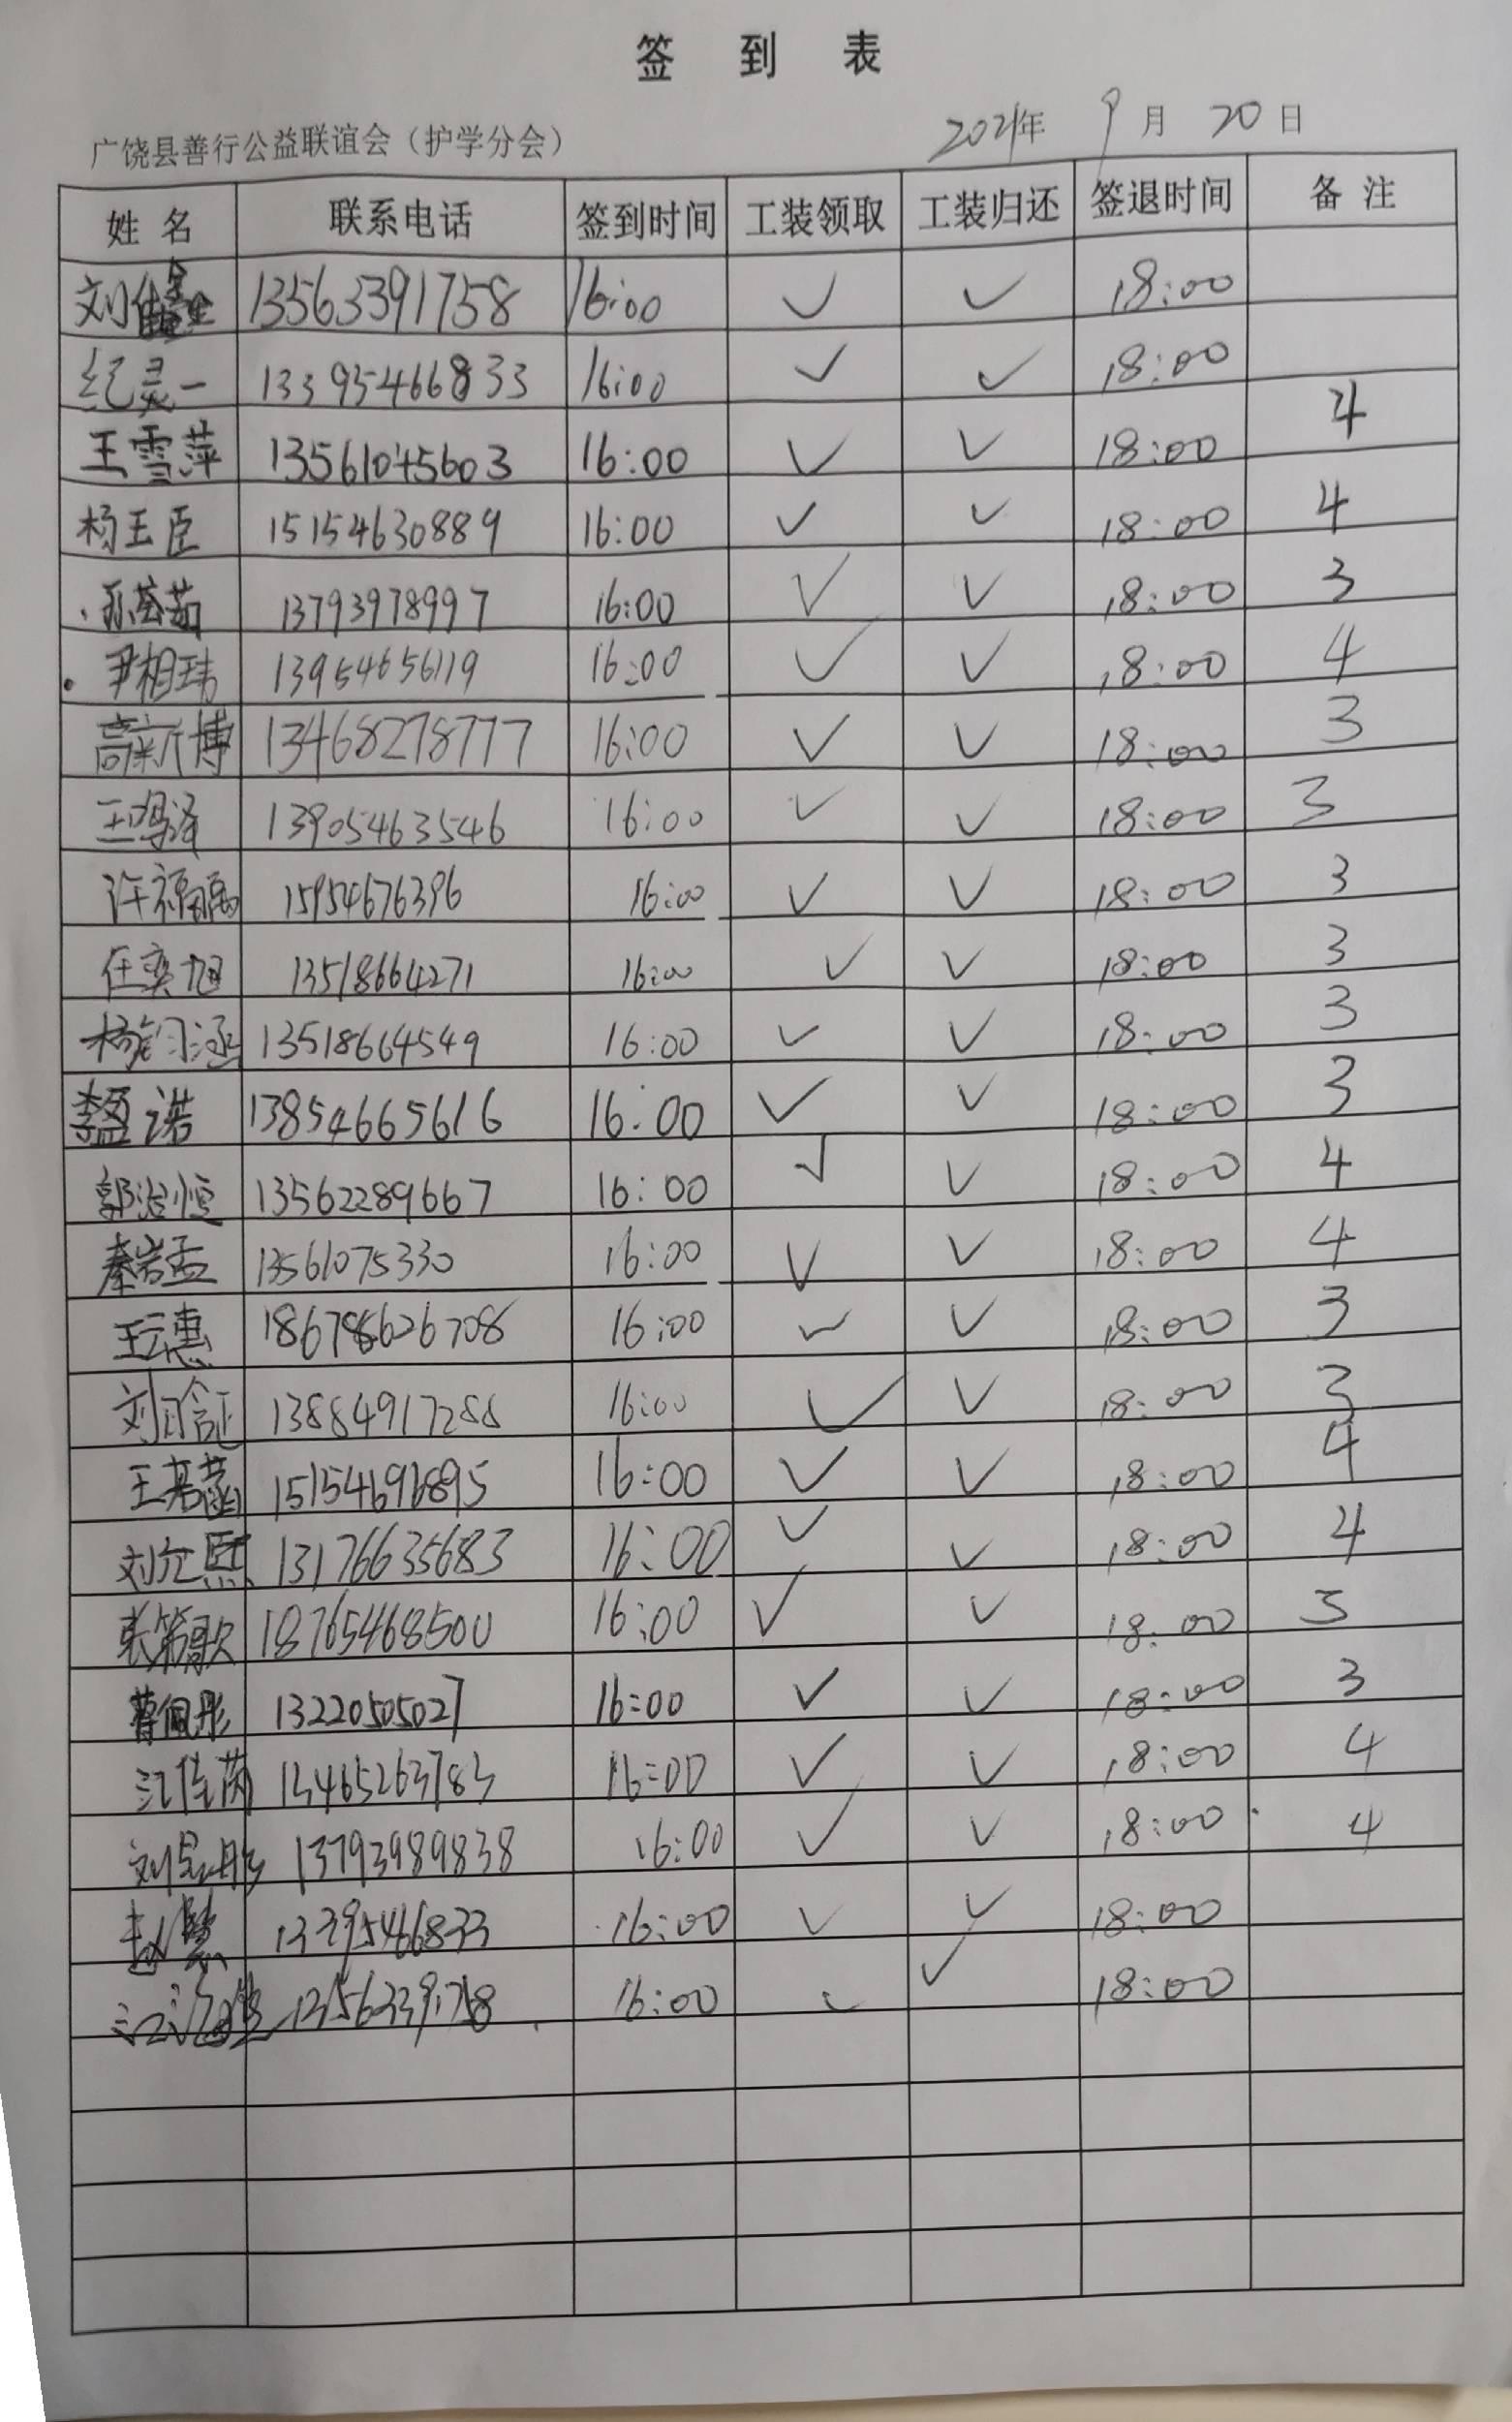 签 到 表
广饶县善行公益联谊会（护学分会） 2024年 9月 20日
姓名 联系电话 签到时间 工装领取 工装归还 签退时间 备注
刘佳鑫 13563391758 16:00 ✓ ✓ 18:00
纪灵一 13395466833 16:00 ✓ ✓ 18:00
王雪萍 13561045603 16:00 ✓ ✓ 18:00 4
杨王臣 15154630889 16:00 ✓ ✓ 18:00 4
孙荟茹 13793978997 16:00 ✓ ✓ 18:00 3
尹相玮 13954656119 16:00 ✓ ✓ 18:00 4
高新博 13468278777 16:00 ✓ ✓ 18:00 3
王鸣泽 13905463546 16:00 ✓ ✓ 18:00 3
许福禹 15954676396 16:00 ✓ ✓ 18:00 3
任奕旭 13518664271 16:00 ✓ ✓ 18:00 3
杨钧涵 13518664549 16:00 ✓ ✓ 18:00 3
李盈诺 13854665616 16:00 ✓ ✓ 18:00 3
郭治恒 13562289667 16:00 ✓ ✓ 18:00 4
秦岩孟 13561075330 16:00 ✓ ✓ 18:00 4
王云惠 18678626708 16:00 ✓ ✓ 18:00 3
刘 13884917288 16:00 ✓ ✓ 18:00 3
王若菡 16:00 ✓ ✓ 18:00 4
刘允熙 13176635683 16:00 ✓ ✓ 18:00 4
张第歌 18765468500 16:00 ✓ ✓ 18:00 3
曹佩彤 13220505027 16:00 ✓ ✓ 18:00 3
江佳茵 13465263783 16:00 ✓ ✓ 18:00 4
刘昱彤 13793989838 16:00 ✓ ✓ 18:00 4
赵慧 13395466833 16:00 ✓ ✓ 18:00
江 13563391758 16:00 ✓ ✓ 18:00